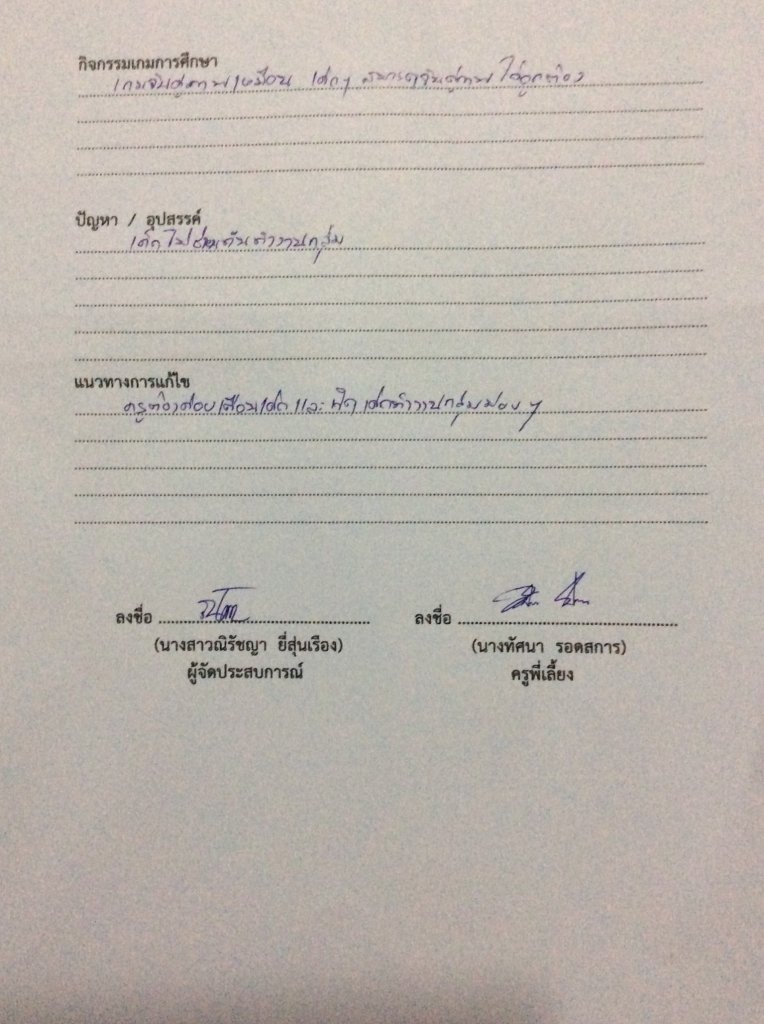 กิจกรรมเกมการศึกษา
เกมจับคู่ภาพเหมือน เด็กๆ สามารถจับคู่ภาพ ได้ถูกต้อง
ปัญหา / อุปสรรค์
เด็กไม่ช่วยกันทำงานกลุ่ม
แนวทางการแก้ไข
ครูต้องคอยเตือนเด็ก และ ให้เด็กทำงานกลุ่มบ่อย ๆ
ลงชื่อ ลงชื่อ
(นางสาวณิรัชญา ยี่สุ่นเรือง) (นางทัศนา รอดสการ)
ผู้จัดประสบการณ์ ครูพี่เลี้ยง